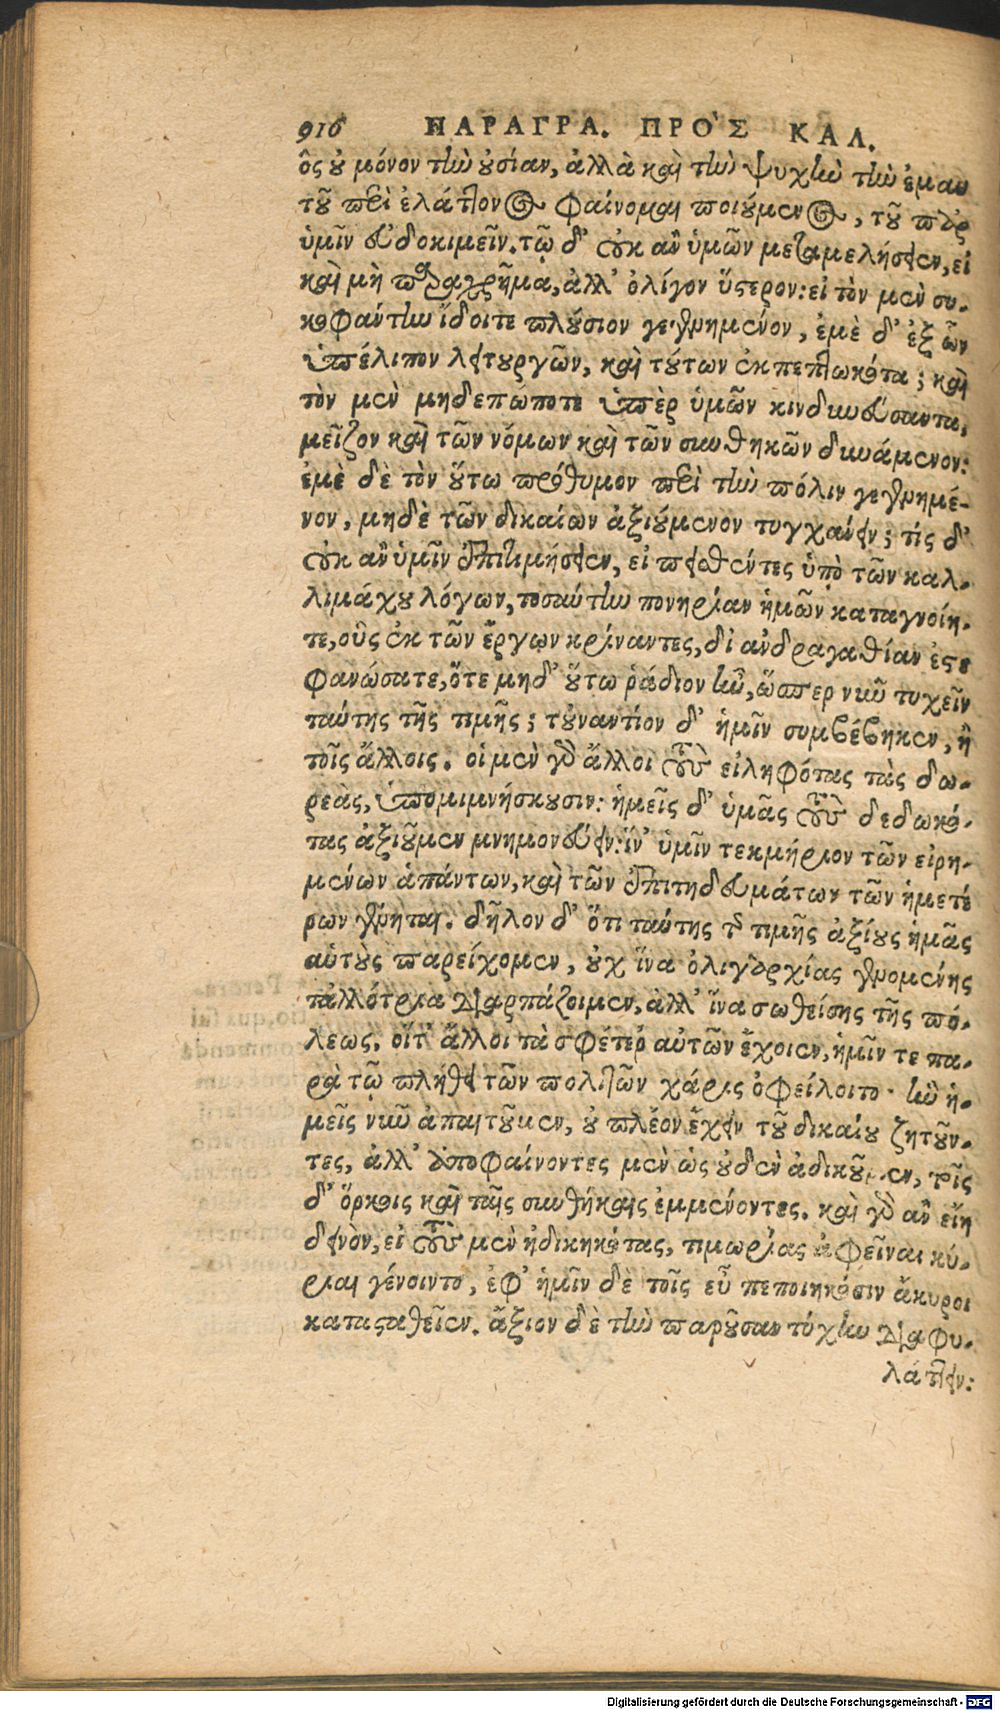 916 ΠΑΡΑΓΡΑ. ΠΡΟ`Σ ΚΑΛ.
ὃς οὐ μόνον τὴν οὐσίαν, ἀλλὰ καὶ τὴν ψυχὴν τὴν ἐμαυ
τοῦ περὶ ἐλάττονος φαίνομαι ποιούμενος, τοῦ παρ
ὑμῖν εὐδοκιμεῖν. τῷ δ' οὐκ ἂν ὑμῶν μεταμελήσειεν, εἰ
καὶ μὴ παραχρῆμα, ἀλλ' ὀλίγον ὕστερον: εἰ τὸν μὲν συ-
κοφάντην ἴδοιτε πλούσιον γεγενημένον, ἐμὲ δ' ἐξ ὧν
ὑπέλιπον λειτουργῶν, καὶ τούτων ἐκπεπτωκότα; καὶ
τὸν μὲν μηδεπώποτε ὑπὲρ ὑμῶν κινδυνεύσαντα,
μεῖζον καὶ τῶν νόμων καὶ τῶν συνθηκῶν δυνάμενον:
ἐμὲ δὲ τὸν οὕτω πρόθυμον περὶ τὴν πόλιν γεγενημέ-
νον, μηδὲ τῶν δικαίων ἀξιούμενον τυγχάνειν; τίς δ'
οὐκ ἂν ὑμῖν ἐπιτιμήσειεν, εἰ πεισθέντες ὑπὸ τῶν καλ-
λιμάχου λόγων, τοσαύτην πονηρίαν ἡμῶν καταγνοίη-
τε, οὓς ἐκ τῶν ἔργων κρίναντες, δι ἀνδραγαθίαν ἐστε
φανώσατε, ὅτε μηδ' οὕτω ῥάδιον ἦν, ὥσπερ νῦν τυχεῖν
ταύτης τῆς τιμῆς; τοὐναντίον δ' ἡμῖν συμβέβηκεν, ἢ
τοῖς ἄλλοις. οἱ μὲν γὰρ ἄλλοι τοὺς εἰληφότας τὰς δω-
ρεὰς, ὑπομιμνήσκουσιν: ἡμεῖς δ' ὑμᾶς τοὺς δεδωκό-
τας ἀξιοῦμεν μνημονεύειν: ἵν' ὑμῖν τεκμήριον τῶν εἰρη-
μένων ἁπάντων, καὶ τῶν ἐπιτηδευμάτων τῶν ἡμετέ
ρων γένηται. δῆλον δ' ὅτι ταύτης τῆς τιμῆς ἀξίους ἡμᾶς
αὐτοὺς παρείχομεν, οὐχ ἵνα ὀλιγαρχίας γενομένης
τἀλλότρια διαρπάζοιμεν, ἀλλ' ἵνα σωθείσης τῆς πό-
λεως, οἵτ' ἄλλοι τὰ σφέτερ' αὐτῶν ἔχοιεν, ἡμῖν τε πα-
ρὰ τῷ πλήθει τῶν πολιτῶν χάρις ὀφείλοιτο· ἣν ἡ-
μεῖς νῦν ἀπαιτοῦμεν, οὐ πλέον ἔχειν τοῦ δικαίου ζητοῦν-
τες, ἀλλ' ἀποφαίνοντες μὲν ὡς οὐδὲν ἀδικοῦμεν, τοῖς
δ' ὅρκοις καὶ ταῖς συνθήκαις ἐμμένοντες. καὶ γὰρ ἂν εἴη
δεινὸν, εἰ τοὺς μὲν ἠδικηκότας, τιμωρίας ἀφεῖναι κύ-
ριαι γένοιντο, ἐφ' ἡμῖν δὲ τοῖς εὖ πεποιηκόσιν ἄκυροι
κατασταθεῖεν. ἄξιον δὲ τὴν παροῦσαν τύχην διαφυ-
λάττειν:
Digitalisierung gefördert durch die Deutsche Forschungsgemeinschaft - DFG